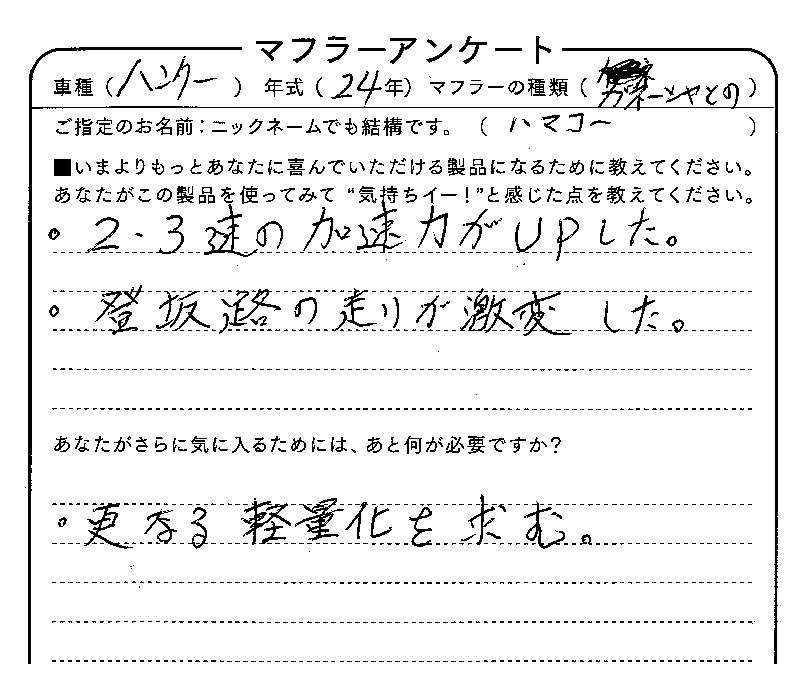 マフラーアンケート
車種（ハンター） 年式（24年） マフラーの種類（ ）
ご指定のお名前：ニックネームでも結構です。（ハマコー）
■いまよりもっとあなたに喜んでいただける製品になるために教えてください。
あなたがこの製品を使ってみて“気持ちイー！”と感じた点を教えてください。
。2・3速の加速力がUPした。
。登坂路の走りが激変した。
あなたがさらに気に入るためには、あと何が必要ですか？
。更なる軽量化を求む。